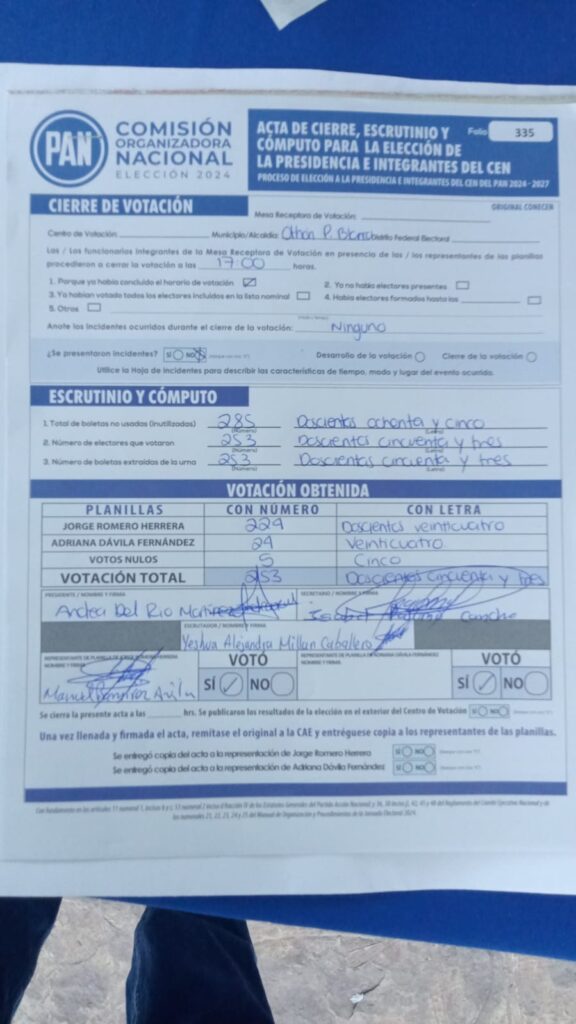 PAN
COMISIÓN
ORGANIZADORA
NACIONAL
ELECCIÓN 2024
ACTA DE CIERRE, ESCRUTINIO Y
CÓMPUTO PARA LA ELECCIÓN DE
LA PRESIDENCIA E INTEGRANTES DEL CEN
PROCESO DE ELECCIÓN A LA PRESIDENCIA E INTEGRANTES DEL CEN DEL PAN 2024 - 2027
Folio 335
ORIGINAL CONECEN
CIERRE DE VOTACIÓN
Mesa Receptora de Votación:
Centro de Votación Municipio/Alcaldía: Othon P. Blanco Distrito Federal Electoral
Las / Los funcionarios integrantes de la Mesa Receptora de Votación en presencia de las / los representantes de las planillas
procedieron a cerrar la votación a las 17 00 horas.
1. Porque ya había concluido el horario de votación 2. Ya no había electores presentes
3. Ya habían votado todos los electores incluidos en la lista nominal 4. Había electores formados hasta las
5. Otros
Anote los incidentes ocurridos durante el cierre de la votación: Ninguno
¿Se presentaron incidentes? SÍ NO Desarrollo de la votación Cierre de la votación
Utilice la Hoja de Incidentes para describir las características de tiempo, modo y lugar del evento ocurrido.
ESCRUTINIO Y CÓMPUTO
1. Total de boletas no usadas (inutilizadas) 285 Doscientos ochenta y cinco
(Número) (Letra)
2. Número de electores que votaron 253 Doscientos cincuenta y tres
(Número) (Letra)
3. Número de boletas extraídas de la urna 253 Doscientos cincuenta y tres
(Número) (Letra)
VOTACIÓN OBTENIDA
PLANILLAS CON NÚMERO CON LETRA
JORGE ROMERO HERRERA 224 Doscientos veinticuatro
ADRIANA DÁVILA FERNÁNDEZ 24 Veinticuatro
VOTOS NULOS 5 Cinco
VOTACIÓN TOTAL 253 Doscientos cincuenta y tres
PRESIDENTE / NOMBRE Y FIRMA SECRETARIO / NOMBRE Y FIRMA
Andrea Del Rio Canche
ESCRUTADOR / NOMBRE Y FIRMA
Yeshua Alejandra Millan Caballero
REPRESENTANTE DE PLANILLA DE JORGE ROMERO HERRERA
NOMBRE Y FIRMA
VOTÓ
SÍ NO
REPRESENTANTE DE PLANILLA DE ADRIANA DÁVILA FERNÁNDEZ
NOMBRE Y FIRMA
VOTÓ
SÍ NO
Manuel
Se cierra la presente acta a las hrs. Se publicaron los resultados de la elección en el exterior del Centro de Votación SÍ NO
Una vez llenada y firmada el acta, remítase el original a la CAE y entréguese copia a los representantes de las planillas.
Se entregó copia del acta a la representación de Jorge Romero Herrera SÍ NO
Se entregó copia del acta a la representación de Adriana Dávila Fernández SÍ NO